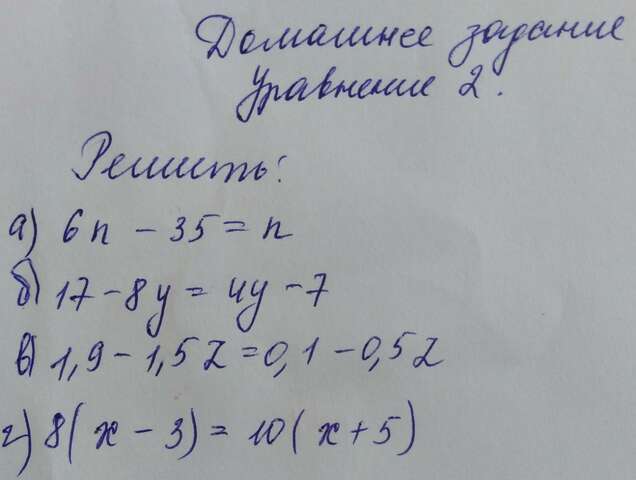 Домашнее задание
Уравнение 2.
Решить:
а) 6n - 35 = n
б) 17 - 8y = 4y - 7
в) 1,9 - 1,5z = 0,1 - 0,5z
г) 8(x - 3) = 10(x + 5)